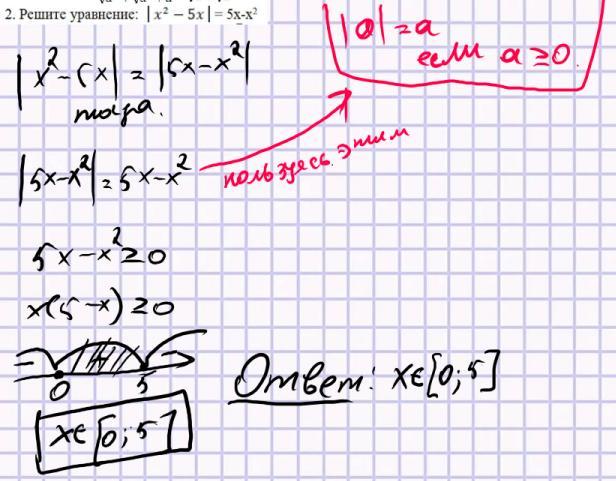 2. Решите уравнение: | x² − 5x | = 5x-x²
|a| = a
если a ≥ 0.
|x² − 5x| = |5x − x²|
тогда.
|5x − x²| = 5x − x²
пользуясь этим
5x − x² ≥ 0
x(5 − x) ≥ 0
0 5
Ответ: x∈[0; 5]
x∈[0; 5]